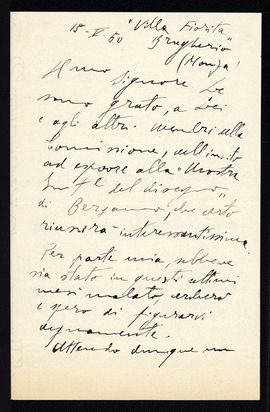 15-V 60 "Villa Fiorita"
Brugherio
(Monza)
Ill.mo Signore Le
sono grato, a Lei
e agli altri membri della
Commissione, dell'invito
ad esporre alla "Mostra
del disegno"
di Bergamo, che certo
riuscirà interessantissima.
Per parte mia, sebbene
sia stato in questi ultimi
mesi malato, cercherò
e spero di figurarvi
degnamente.
Attendo dunque un